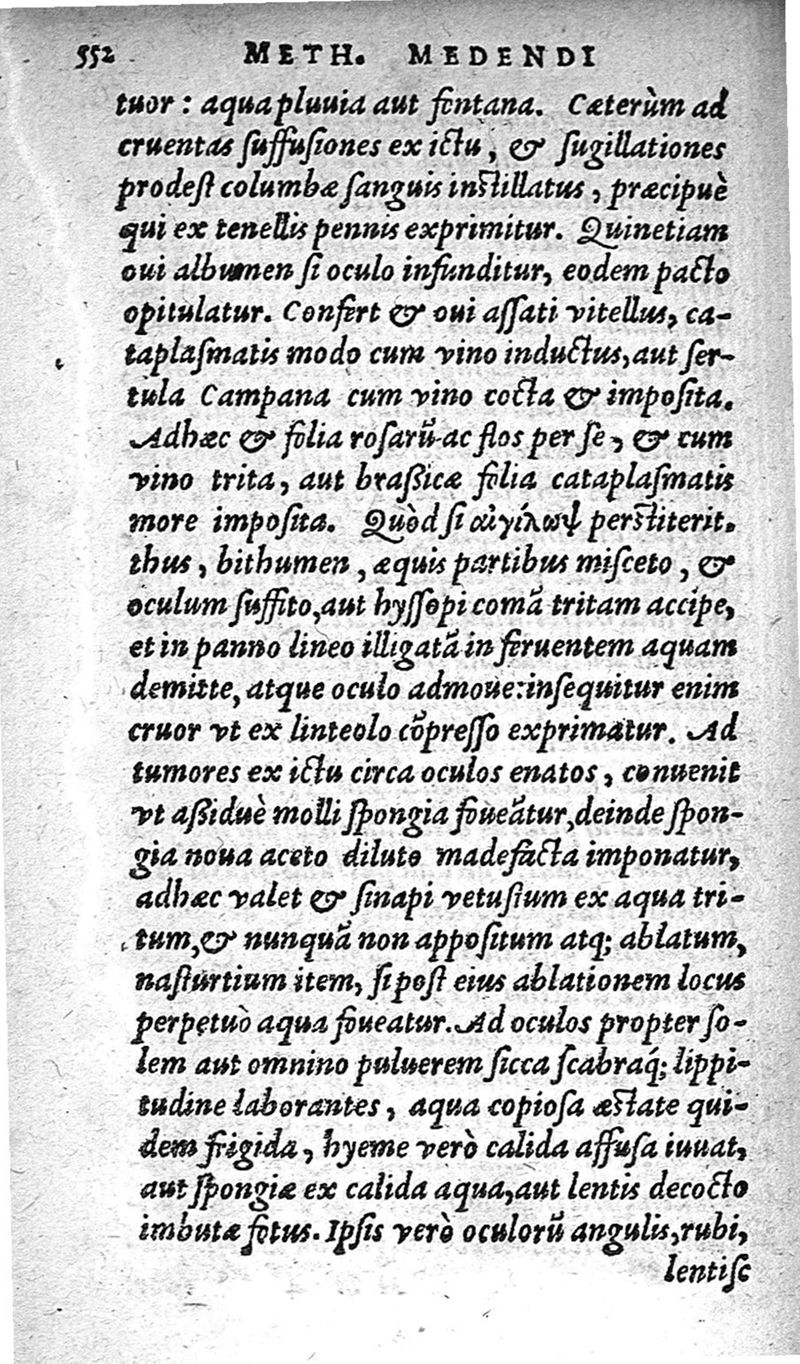 552 METH. MEDENDI
tuor : aqua pluuia aut fontana. Cæterùm ad
cruentas ſuffuſiones ex ictu, & ſugillationes
prodeſt columbæ ſanguis inſtillatus, præcipuè
qui ex tenellis pennis exprimitur. Quinetiam
oui albumen ſi oculo infunditur, eodem pacto
opitulatur. Confert & oui aſſati vitellus, ca-
taplaſmatis modo cum vino inductus, aut ſer-
tula Campana cum vino cocta & impoſita.
Adhæc & folia roſarū ac flos per ſe, & cum
vino trita, aut braßicæ folia cataplaſmatis
more impoſita. Quòd ſi αἰγίλωψ perſtiterit.
thus, bithumen, æquis partibus miſceto, &
oculum ſuffito, aut hyſſopi comā tritam accipe,
et in panno lineo illigatā in feruentem aquam
demitte, atque oculo admoue: inſequitur enim
cruor vt ex linteolo cōpreſſo exprimatur. Ad
tumores ex ictu circa oculos enatos, conuenit
vt aßiduè molli ſpongia foueātur, deinde ſpon-
gia noua aceto diluto madefacta imponatur,
adhæc valet & ſinapi vetuſtum ex aqua tri-
tum, & nunquā non appoſitum atq; ablatum,
naſturtium item, ſi poſt eius ablationem locus
perpetuò aqua foueatur. Ad oculos propter ſo-
lem aut omnino puluerem ſicca ſcabraq́; lippi-
tudine laborantes, aqua copioſa æſtate qui-
dem frigida, hyeme verò calida affuſa iuuat,
aut ſpongiæ ex calida aqua, aut lentis decocto
imbutæ fotus. Ipſis verò oculorū angulis, rubi,
lentiſc